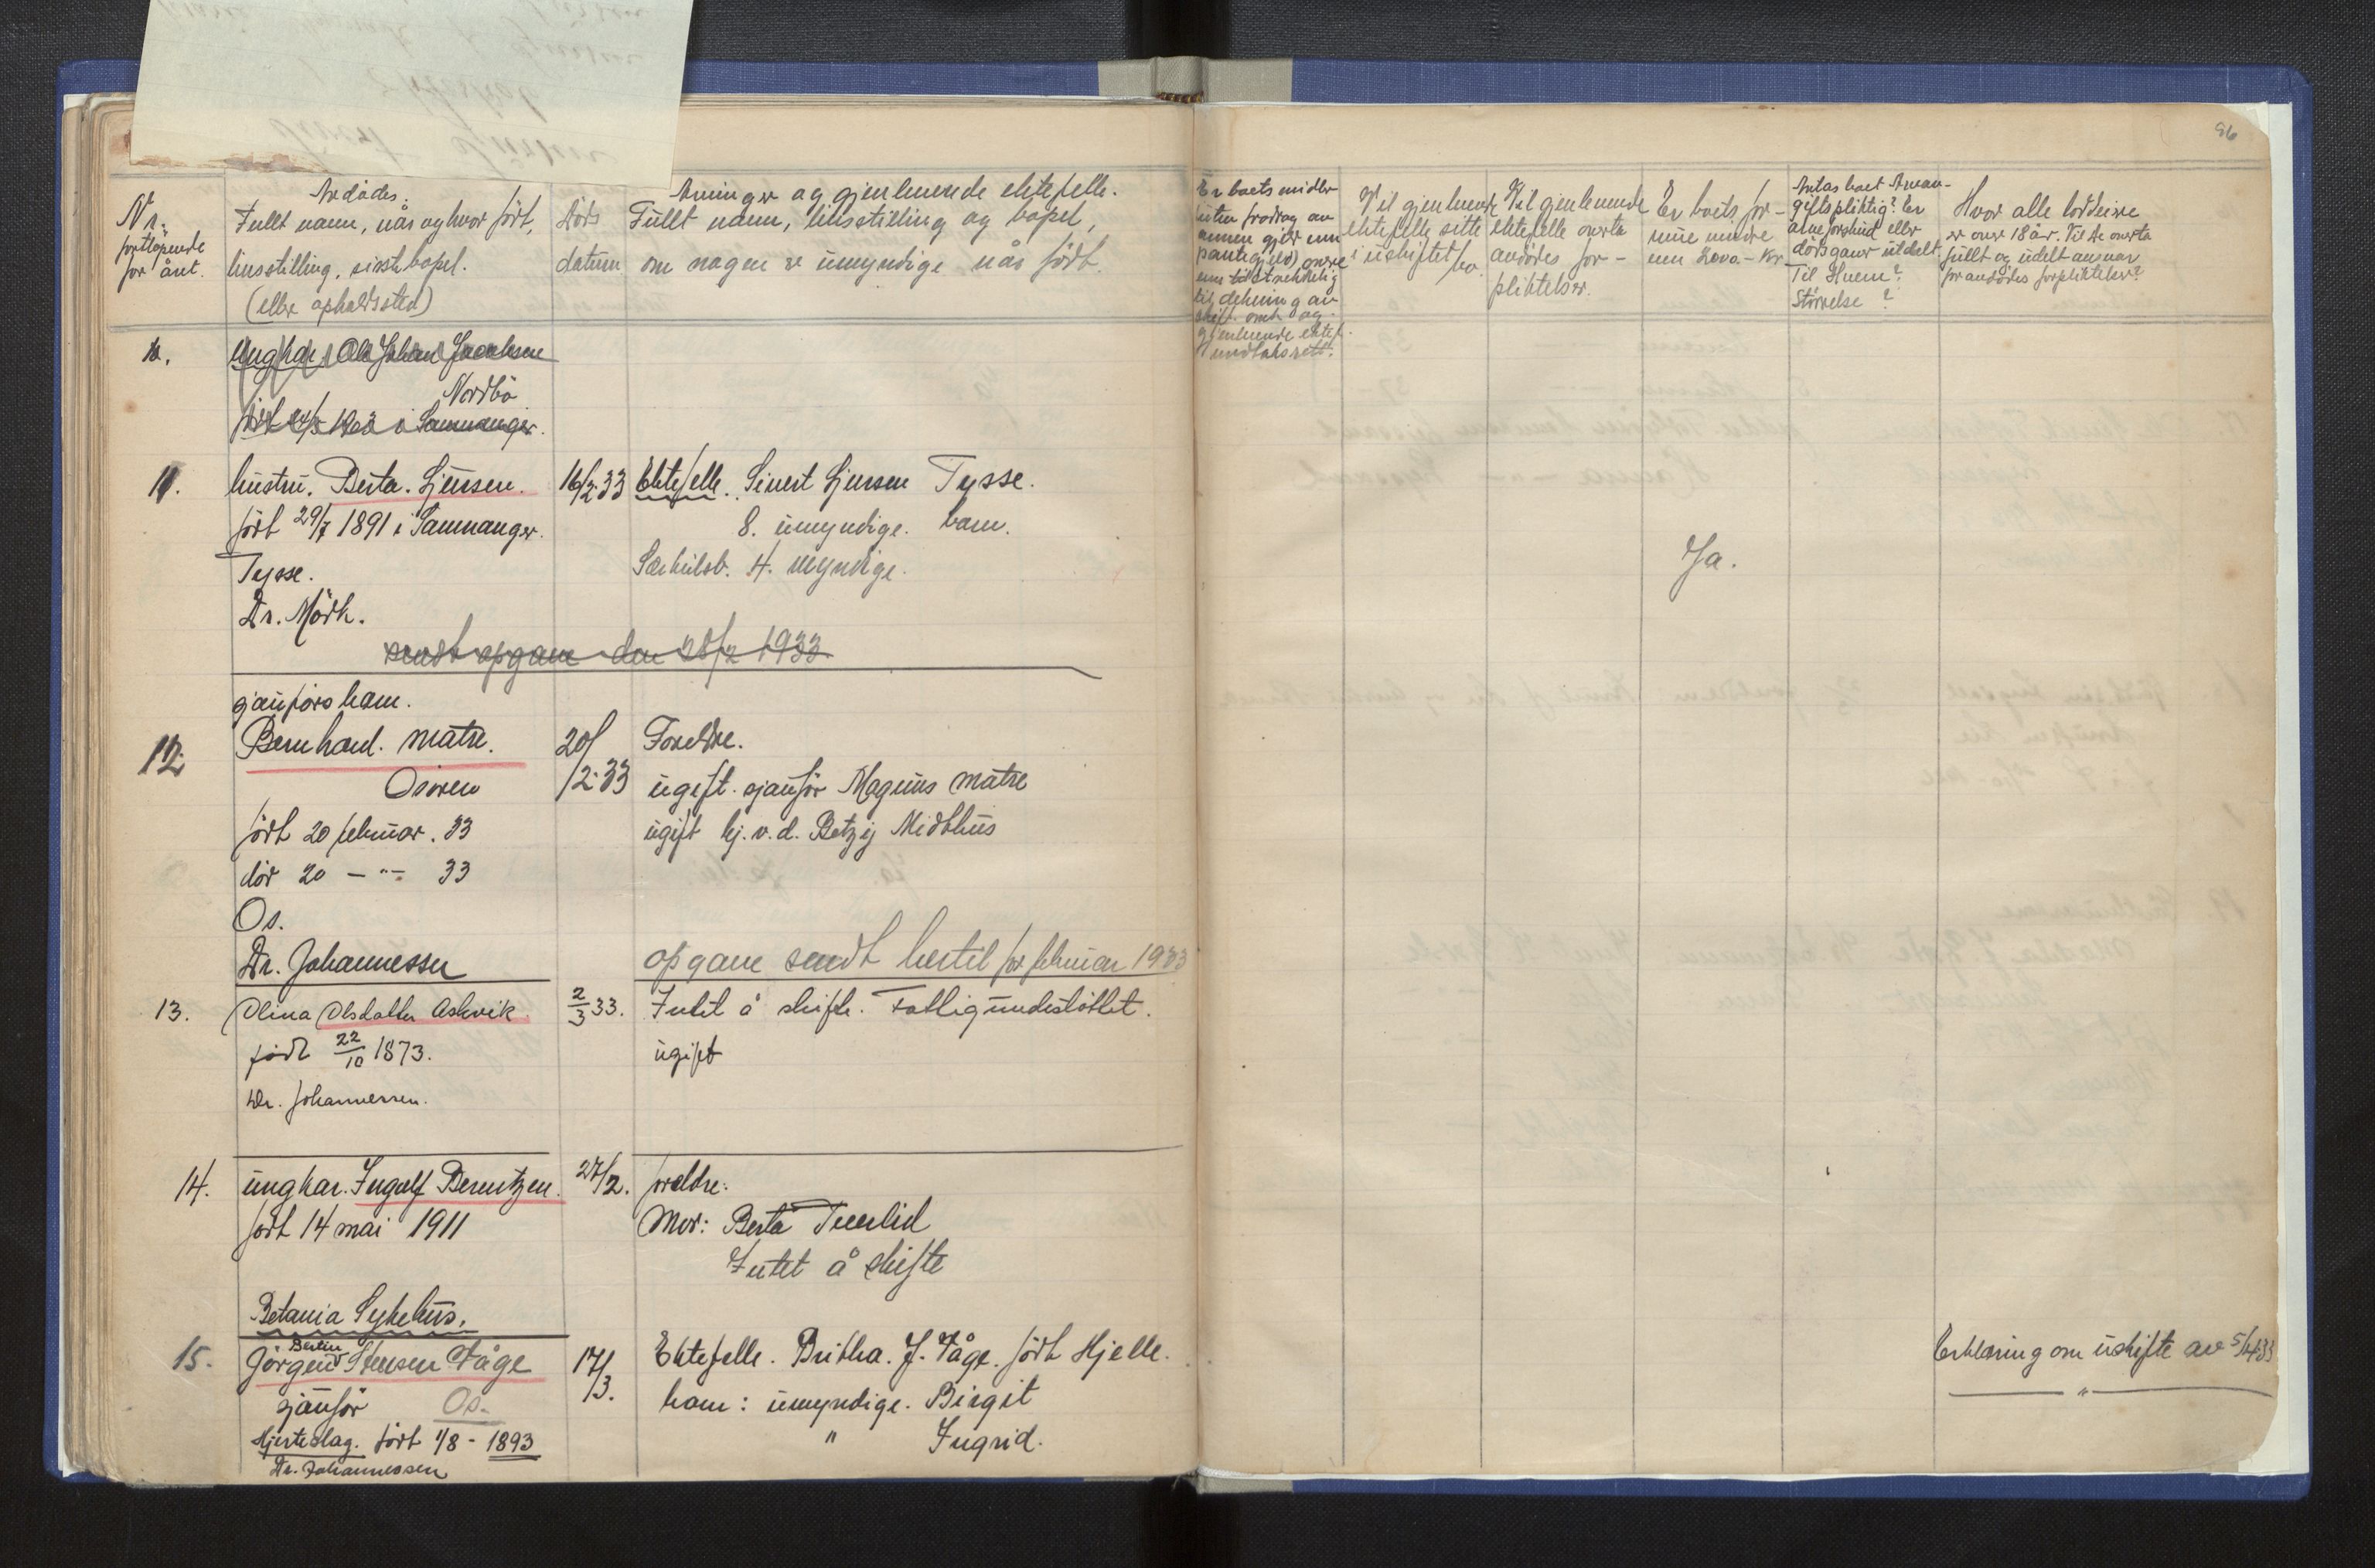 86
Nr.
fortløpende
for året.
Avdødes:
Fullt navn, når og hvor født,
livsstilling, siste bopel.
(eller opholdssted)
Døds
datum
Arvinger og gjenlevende ektefelle.
Fullt navn, livsstilling og bopel,
om nogen er umyndige når født.
Er boets midler
uten fradrag av
annen gjeld enn
pantegjeld, større
enn tilstrekkelig
til dekning av
skift. omk. og
gjenlevende ektef.
undtaksrett.
Vil gjenlevende
ektefelle sitte
i uskiftet bo.
Vil gjenlevende
ektefelle overta
avdødes for-
pliktelser.
Er boets for-
mue mindre
enn 2000.- kr
Antas boet å være av-
giftspliktig? Er
arveforskud eller
dødsgaver utdelt
Til Hvem?
Størrelse?
Hvor alle loddeiere
er over 18 år. Vil de overta
fullt og udelt ansvar
for avdødes forpliktelser?
10.
Ungkar Ole Johan Jacobsen
Nordbø
født 1903 i Samnanger.
11.
hustru. Berta. Sjursen.
16/2-33
Ektefelle. Sivert Sjursen Tysse.
født 29/7 1891 i Samnanger.
8. umyndige. barn.
Tysse.
Særkulsb. 4. myndige.
Ja.
Dr. Mörk.
sendt opgave den 28/2 1933.
sjauførs barn.
12.
Bernhard. Matre.
20/2-33
Foreldre.
Osøren
ugift. sjauför Magnus Matre
født 20 februar. 33
ugift hj. v. d. Betzy Midthus
dør 20 - " - 33
Os.
Dr. Johannessen
opgave sendt hertil for februar 1933
13.
Olina Olsdatter Askvik
2/3 33.
Intet å skifte. Fattigunderstöttet.
född 22/10 1873.
ugift
Dr. Johannessen.
14.
ungkar. Ingolf Berntzen.
27/2.
foreldre:
født 14 mai 1911
Mor: Berta Tveerlid
Intet å skifte
Betania Sykehus.
15.
Berlin
Jörgen Stensen Våge
17/3.
Ektefelle. Britha. J. Våge. født Hjelle.
Erklæring om uskifte av 5/4-33
"
sjauför Os.
barn: umyndige. Birgit
" Ingrid.
Hjerteslag. født 1/8 - 1893
Dr. Johannessen